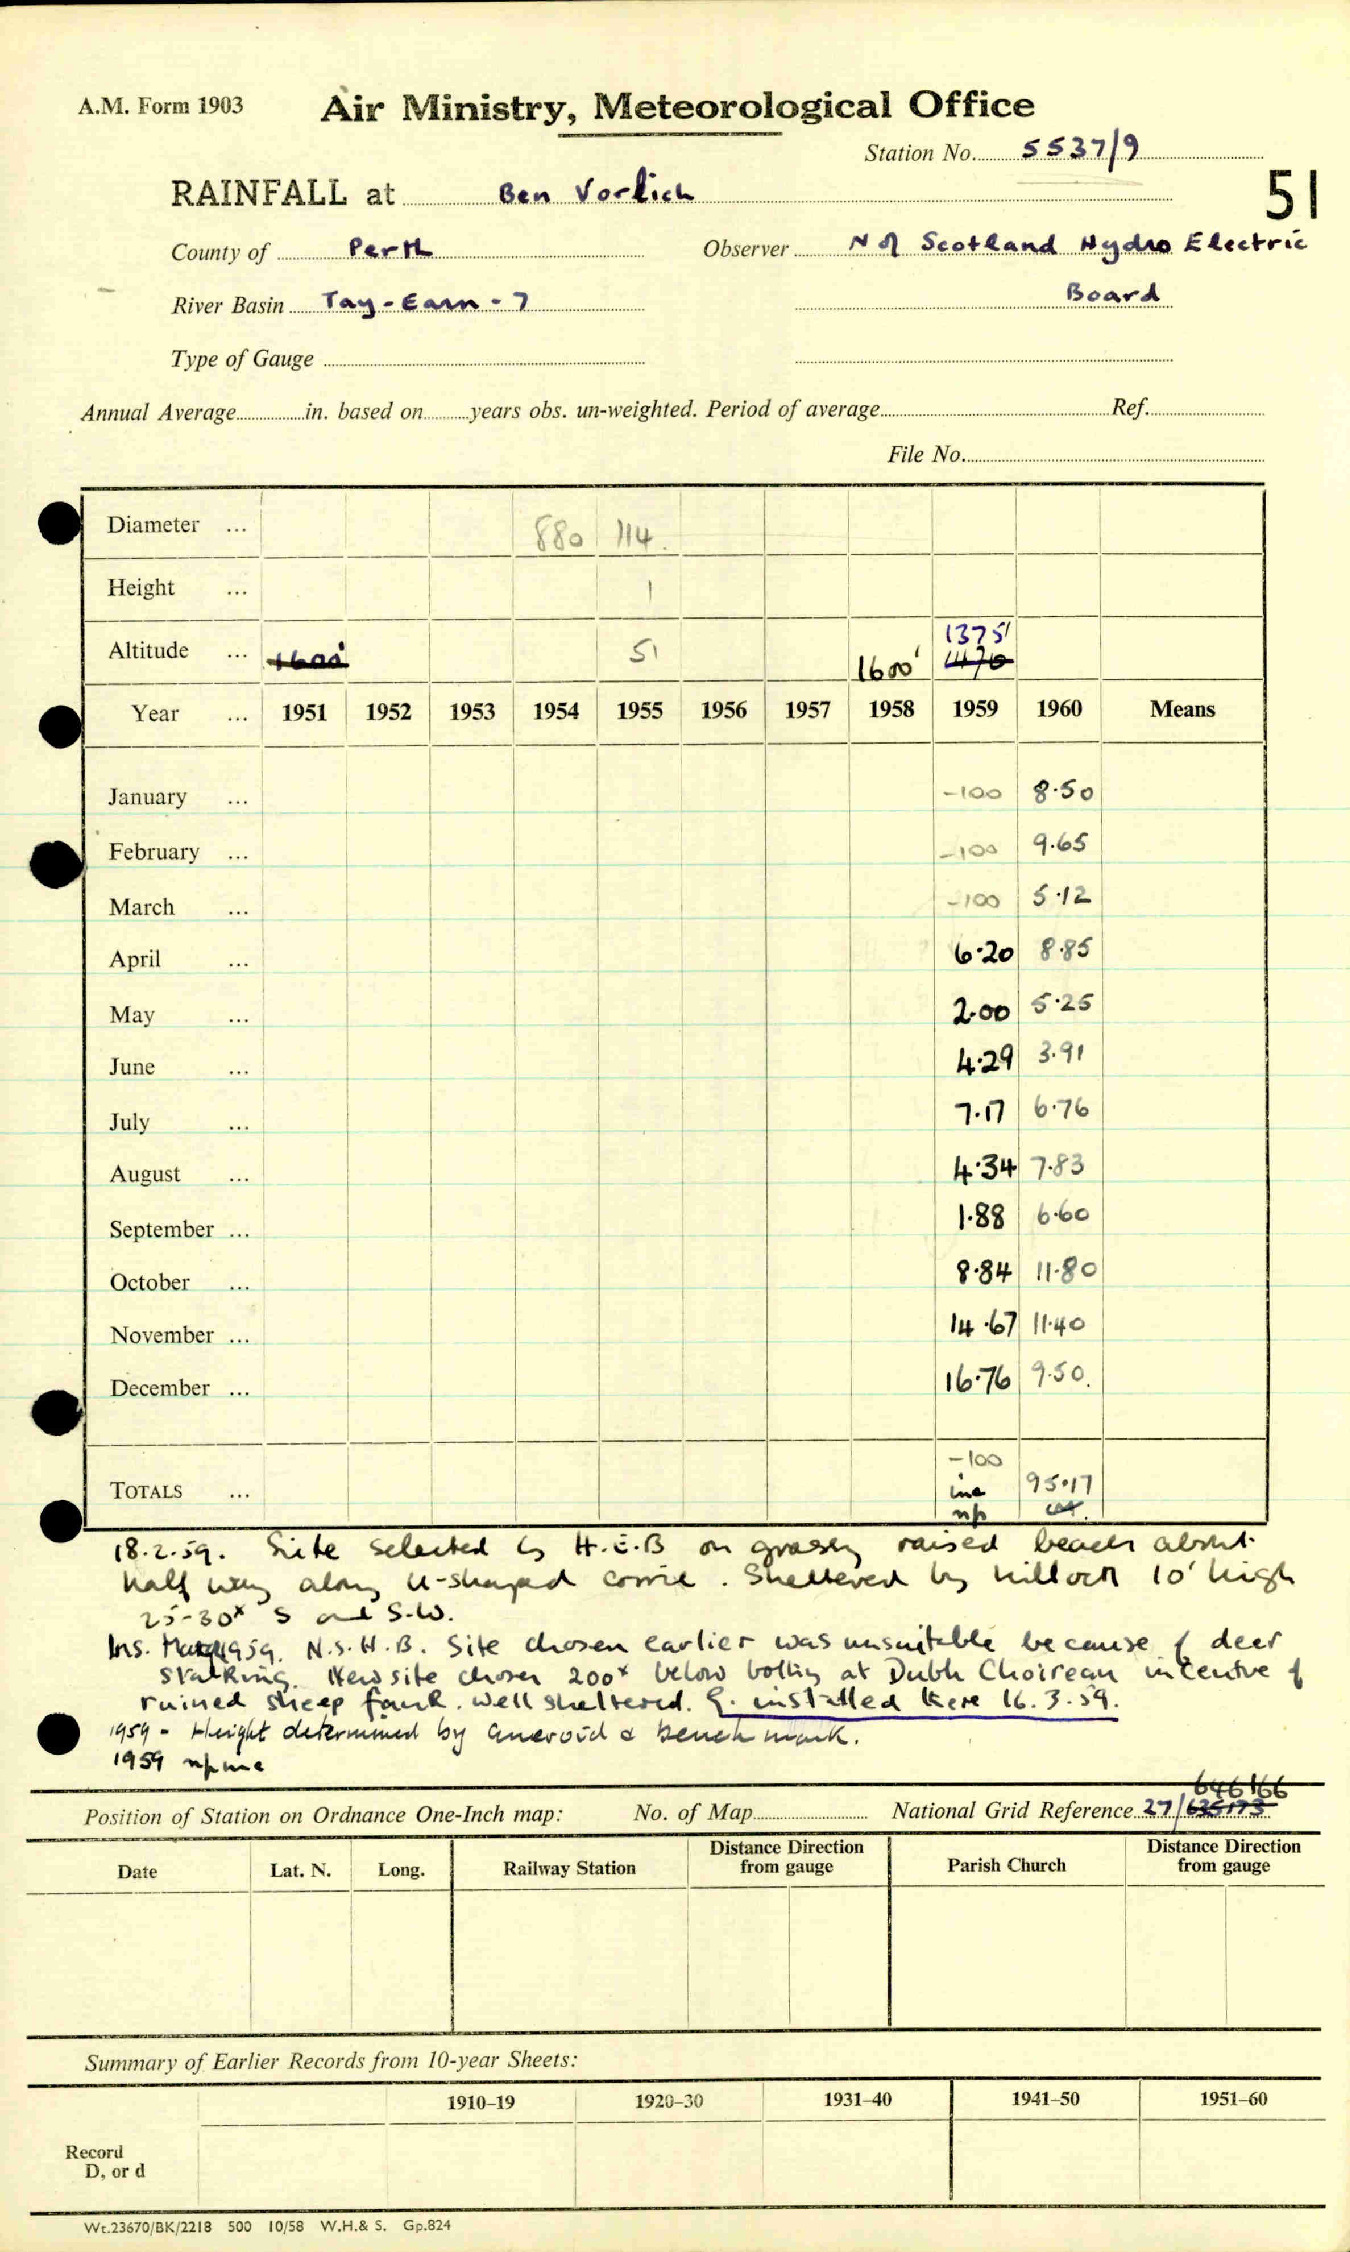 A.M. Form 1903 Air Ministry, Meteorological Office
Station No. 5537/9
RAINFALL at Ben Vorlich 51
County of Perth Observer N of Scotland Hydro Electric
River Basin Tay-Earn-7 Board
Type of Gauge
Annual Average in. based on years obs. un-weighted. Period of average Ref.
File No.
Diameter ... 880 114
Height ... 1
1375'
Altitude ... 1600' 51 1600' 1470
Year ... 1951 1952 1953 1954 1955 1956 1957 1958 1959 1960 Means
January ... -100 8.50
February ... -100 9.65
March ... -100 5.12
April ... 6.20 8.85
May ... 2.00 5.25
June ... 4.29 3.91
July ... 7.17 6.76
August ... 4.34 7.83
September ... 1.88 6.60
October ... 8.84 11.80
November ... 14.67 11.40
December ... 16.76 9.50
-100
TOTALS ... inc 95.17
np
18.2.59. Site selected by H.E.B on grassy raised beach about
half way along U-shaped corrie. Sheltered by hillock 10' high
25-30x S and S.W.
Ins. 1959. N.S.H.B. Site chosen earlier was unsuitable because of deer
stalking. New site chosen 200x below bothy at Dubh Choirean in centre of
ruined sheep fank. Well sheltered. G. installed here 16.3.59.
1959 - Height determined by aneroid & bench mark.
1959 np
646166
Position of Station on Ordnance One-Inch map: No. of Map National Grid Reference 27/635173
Date Lat. N. Long. Railway Station Distance Direction from gauge Parish Church Distance Direction from gauge
Summary of Earlier Records from 10-year Sheets:
1910–19 1920–30 1931–40 1941–50 1951–60
Record
D, or d
Wt.23670/BK/2218 500 10/58 W.H.& S. Gp.824